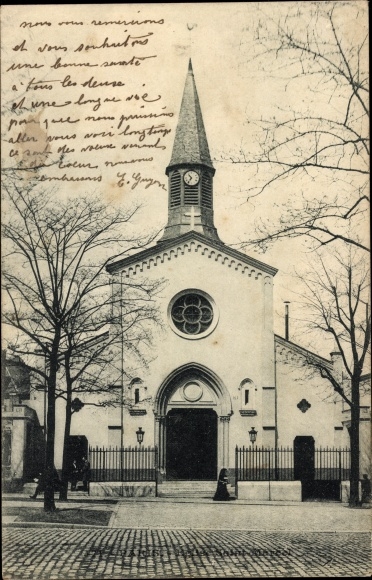 nous vous remercions
et vous souhaitons
une bonne santé
à tous les deuse
et une longue vie
pour que nous puissions
aller vous voir longtemps
ce sont des vœux venant
du cœur nous vous
embrassons E. Guyon
PARIS Saint Marcel